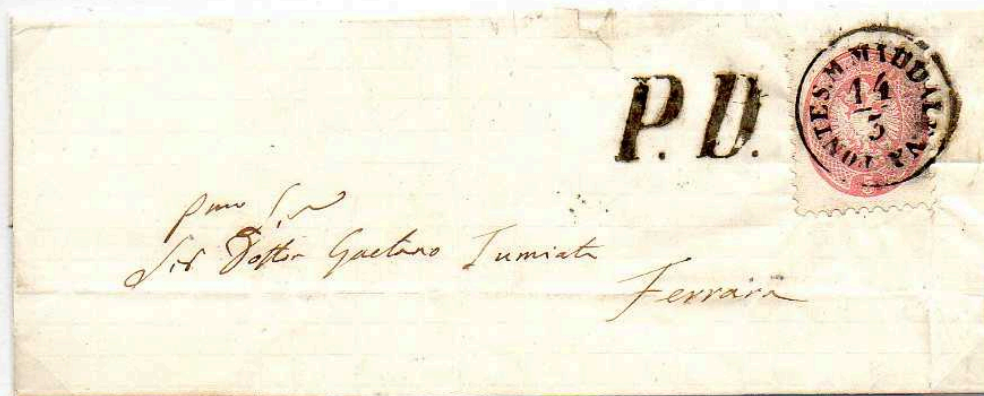 P. D.
PONTE S. M. MADDALENA
14
5
Sig Dottor Gaetano Tumiati
Ferrara